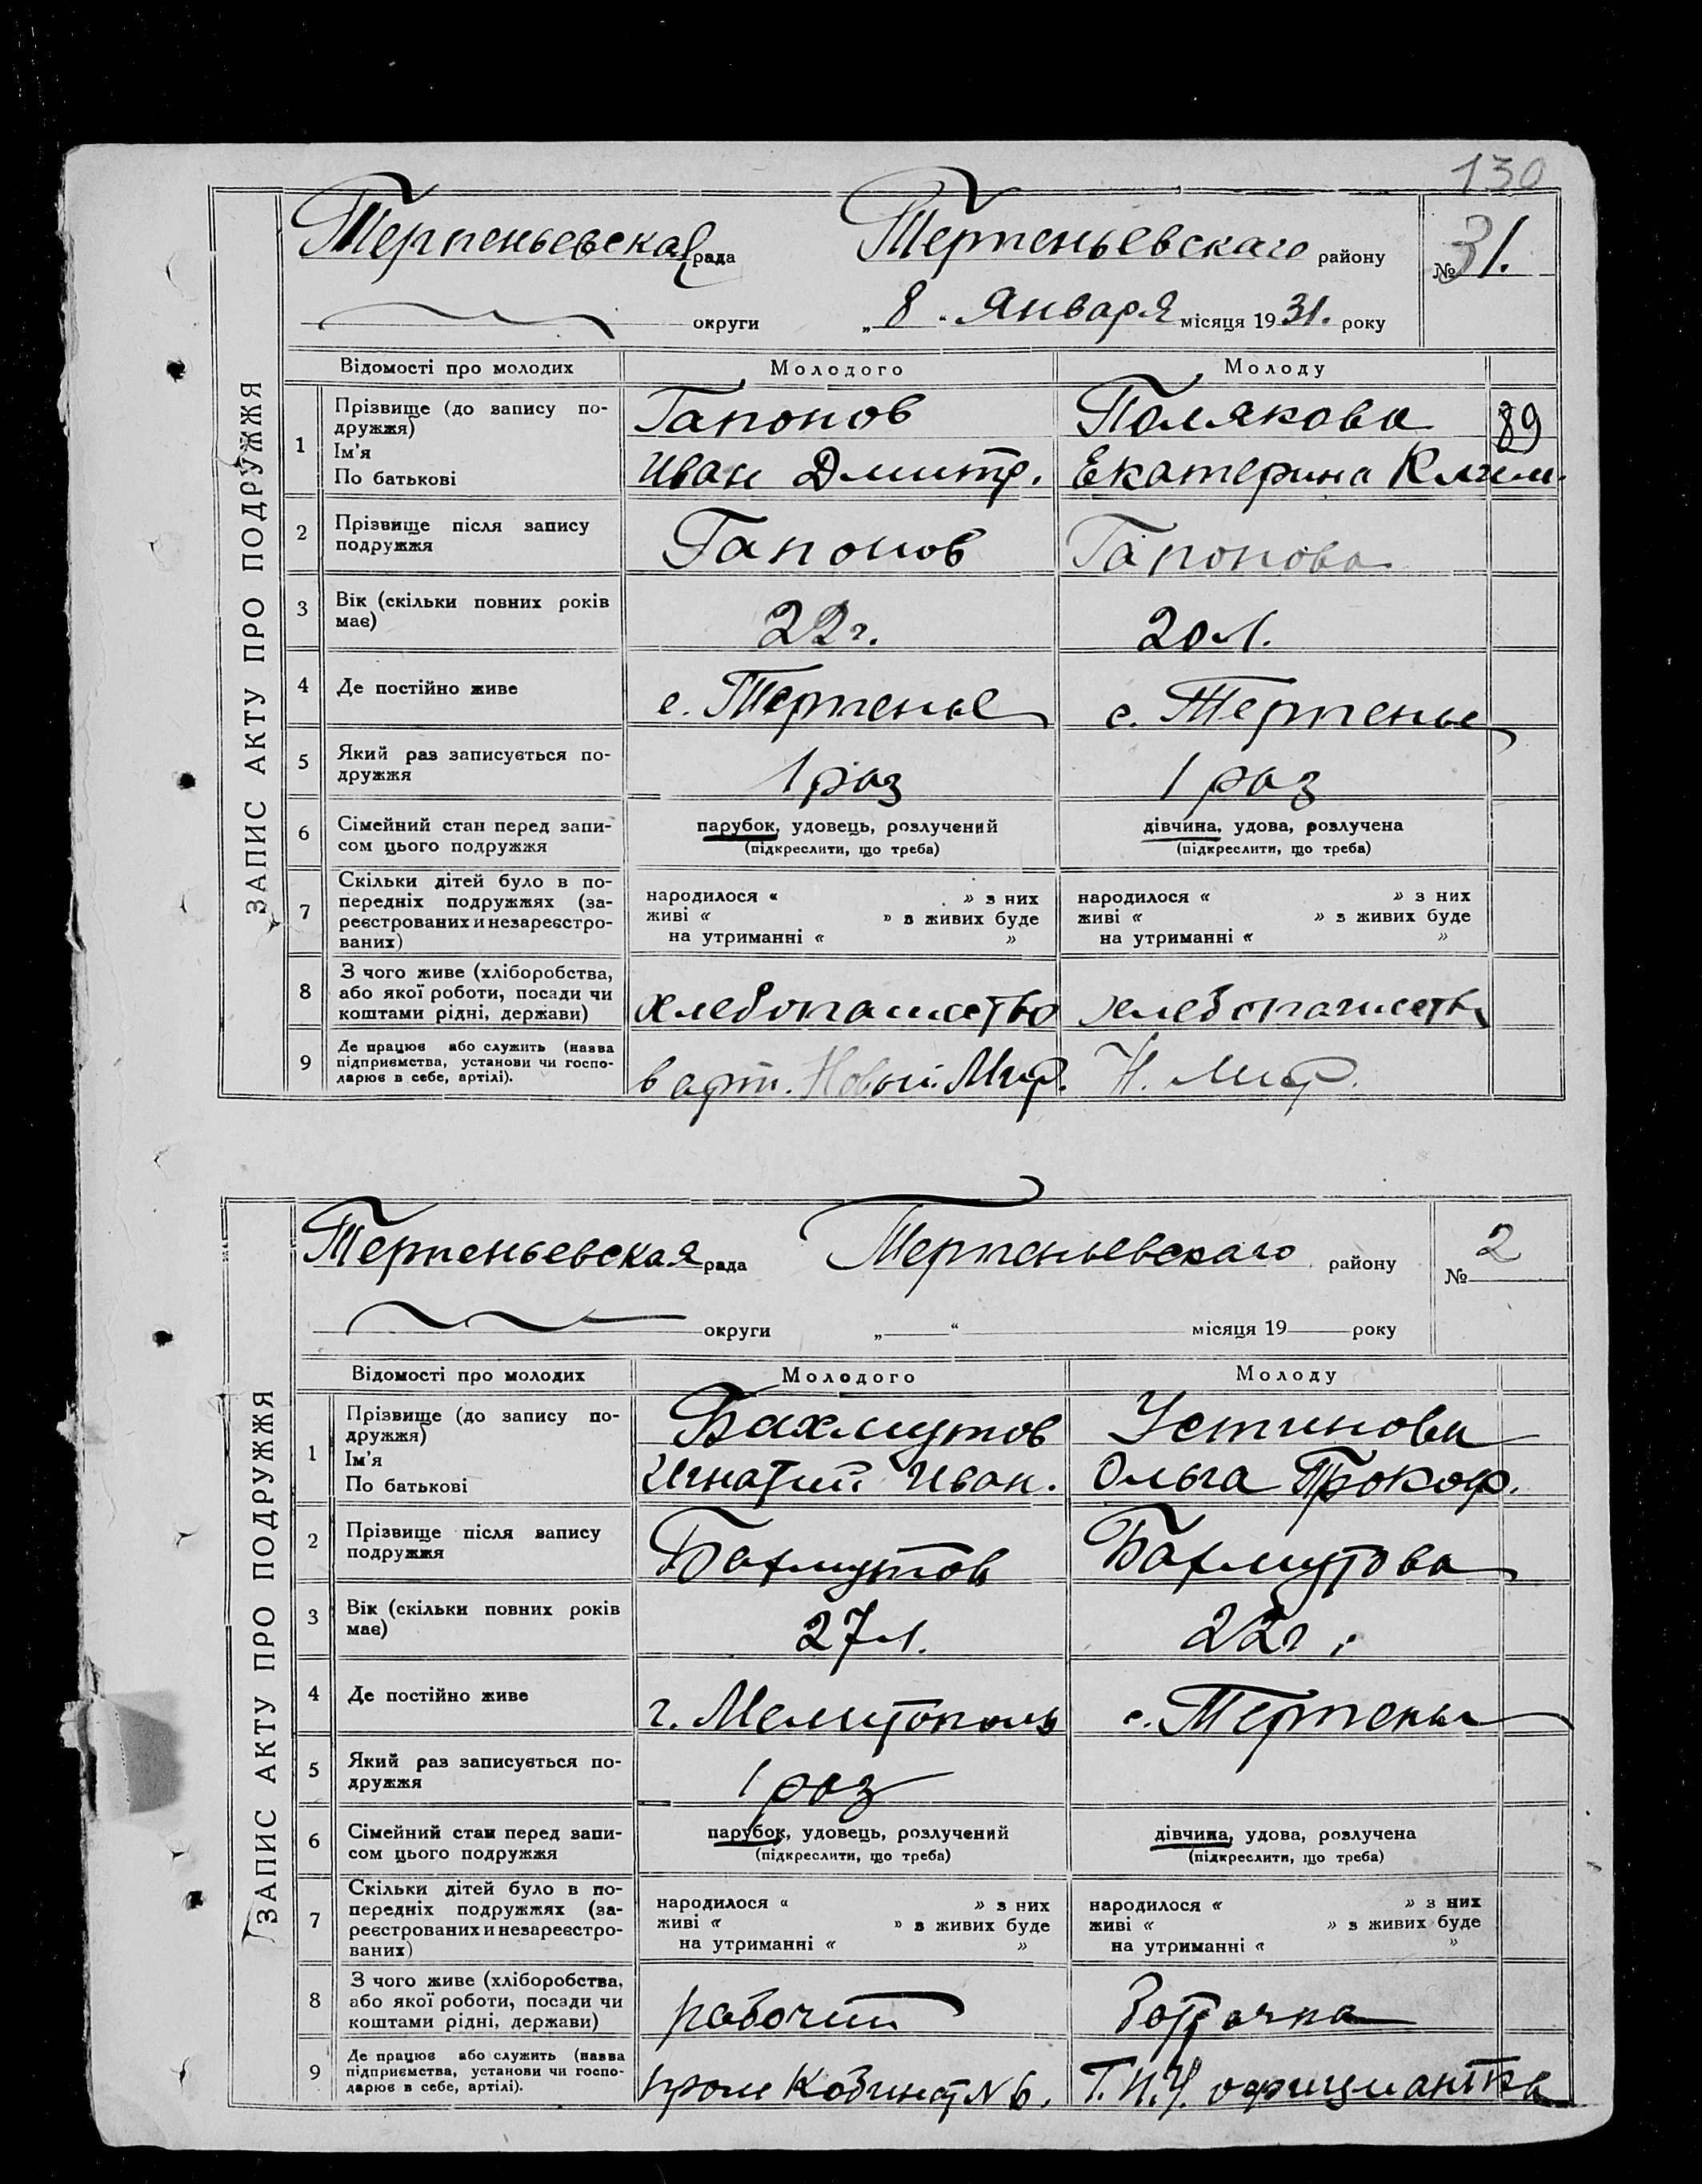 130
ЗАПИС АКТУ ПРО ПОДРУЖЖЯ
Терпеньевская рада Терпеньевскаго району № 31.
округи „ 8 “ Января місяця 1931. року
Відомості про молодих Молодого Молоду
1 Прізвище (до запису по-
дружжя) Гапонов Полякова 89
Ім'я
По батькові Иван Дмитр. Екатерина Клим.
2 Прізвище після запису
подружжя Гапонов Гапонова
3 Вік (скільки повних років
має) 22 г. 20 л.
4 Де постійно живе с. Терпенье с. Терпенье
5 Який раз записується по-
дружжя 1 раз 1 раз
6 Сімейний стан перед запи-
сом цього подружжя парубок, удовець, розлучений дівчина, удова, розлучена
(підкреслити, що треба) (підкреслити, що треба)
7 Скільки дітей було в по-
передніх подружжях (за-
реєстрованих и незареєстро-
ваних)
народилося « » з них народилося « » з них
живі « » з живих буде живі « » з живих буде
на утриманні « » на утриманні « »
8 З чого живе (хліборобства,
або якої роботи, посади чи
коштами рідні, держави) хлебопашество хлебопашеств
9 Де працює або служить (назва
підприємства, установи чи госпо-
дарює в себе, артілі). в арт. Новый Мир. Н. Мир.
ЗАПИС АКТУ ПРО ПОДРУЖЖЯ
Терпеньевская рада Терпеньевскаго району № 2
округи „ “ місяця 19 року
Відомості про молодих Молодого Молоду
1 Прізвище (до запису по-
дружжя) Бахмутов Устинова
Ім'я
По батькові Игнатий Иван. Ольга Прокоф.
2 Прізвище після запису
подружжя Бахмутов Бахмутова
3 Вік (скільки повних років
має) 27 л. 22 г.
4 Де постійно живе г. Мелитополь с. Терпенье
5 Який раз записується по-
дружжя 1 раз
6 Сімейний стан перед запи-
сом цього подружжя парубок, удовець, розлучений дівчина, удова, розлучена
(підкреслити, що треба) (підкреслити, що треба)
7 Скільки дітей було в по-
передніх подружжях (за-
реєстрованих и незареєстро-
ваних)
народилося « » з них народилося « » з них
живі « » з живих буде живі « » з живих буде
на утриманні « » на утриманні « »
8 З чого живе (хліборобства,
або якої роботи, посади чи
коштами рідні, держави) рабочий
9 Де працює або служить (назва
підприємства, установи чи госпо-
дарює в себе, артілі). пром Кобинат № 6. официантка